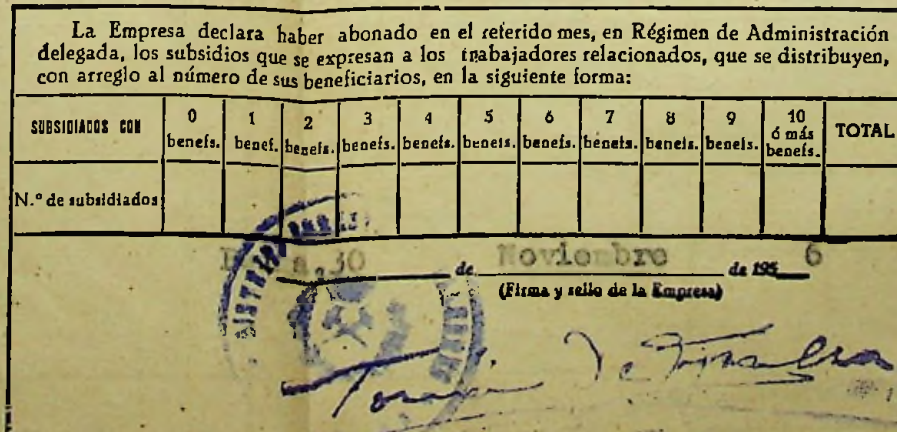 La Empresa declara haber abonado en el referido mes, en Régimen de Administración
delegada, los subsidios que se expresan a los trabajadores relacionados, que se distribuyen,
con arreglo al número de sus beneficiarios, en la siguiente forma:
SUBSIDIADOS CON 0 benefs. 1 benef. 2 benefs. 3 benefs. 4 benefs. 5 benefs. 6 benefs. 7 benefs. 8 benefs. 9 benefs. 10 ó más benefs. TOTAL
N.º de subsidiados
30 de Noviembre de 195 6
(Firma y sello de la Empresa)